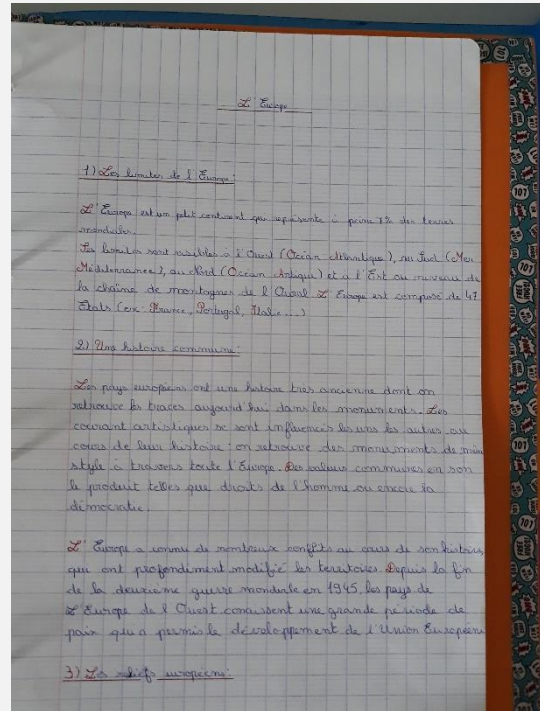 L'Europe
1) Les limites de l'Europe:
L'Europe est un petit continent qui représente à peine 7% des terres
mondiales.
Ses limites sont visibles à l'Ouest (Océan Atlantique), au Sud (Mer
Méditerranée), au Nord (Océan Arctique) et à l'Est au niveau de
la chaîne de montagnes de l'Oural L'Europe est composé de 47
États (ex: France, Portugal, Italie ...)
2) Une histoire commune:
Les pays européens ont une histoire très ancienne dont on
retrouve les traces aujourd'hui dans les monuments. Les
courant artistiques se sont influencés les uns les autres au
cours de leur histoire: on retrouve des monuments de même
style à travers toute l'Europe. Des valeurs communes en son
le produit telles que droits de l'homme ou encore la
démocratie.
L'Europe a connu de nombreux conflits au cours de son histoire,
qui ont profondiment modifié les territoires. Depuis la fin
de la deuxième guerre mondiale en 1945, les pays de
L'Europe de l'Ouest conaissent une grande période de
paix qui a permis le développement de l'Union Européenne
3) Les reliefs européens:
101
101